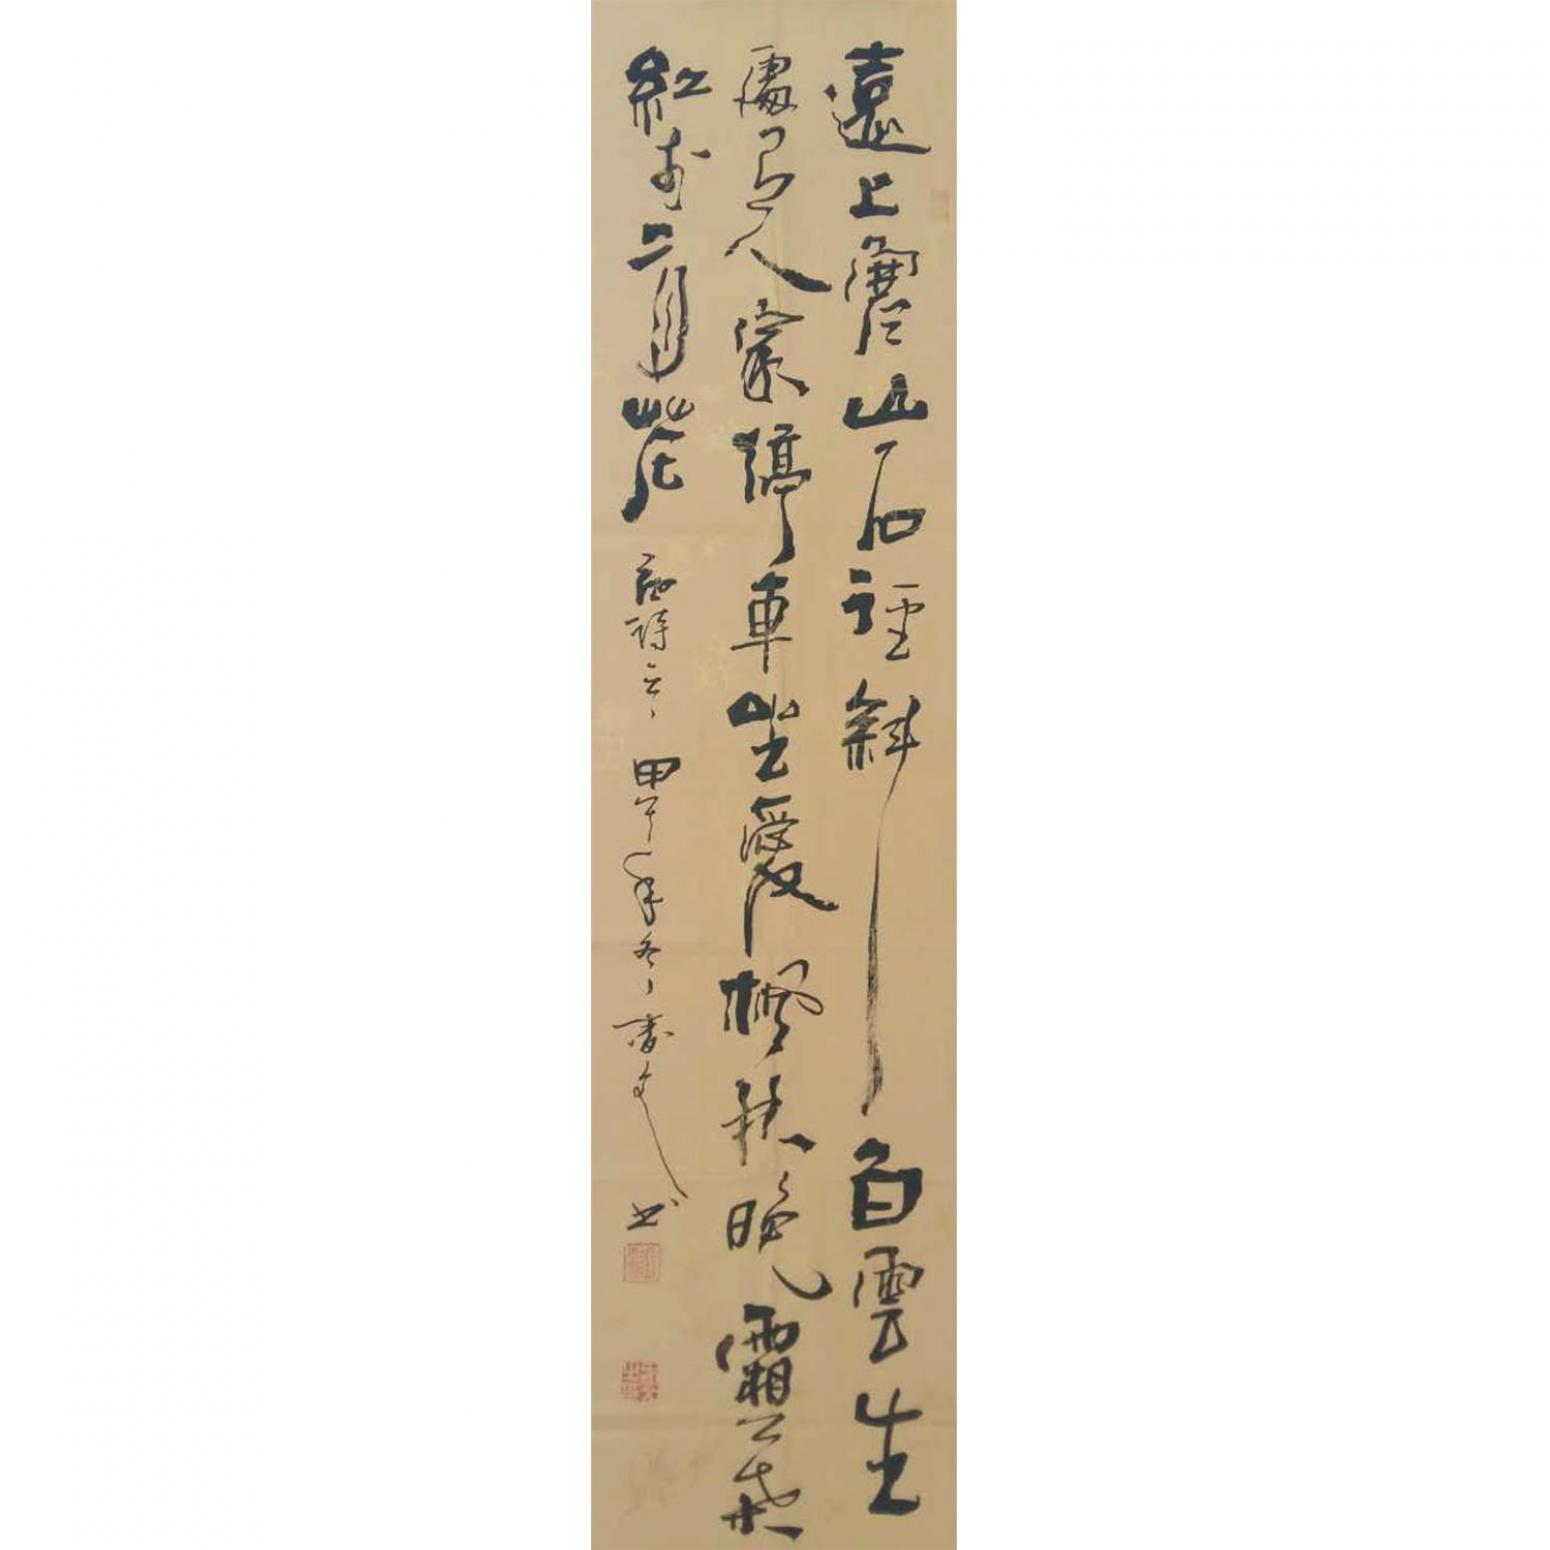 遠上寒山石徑斜白雲生
處有人家停車坐愛楓林晚霜葉
紅於二月花 甲午年冬 書